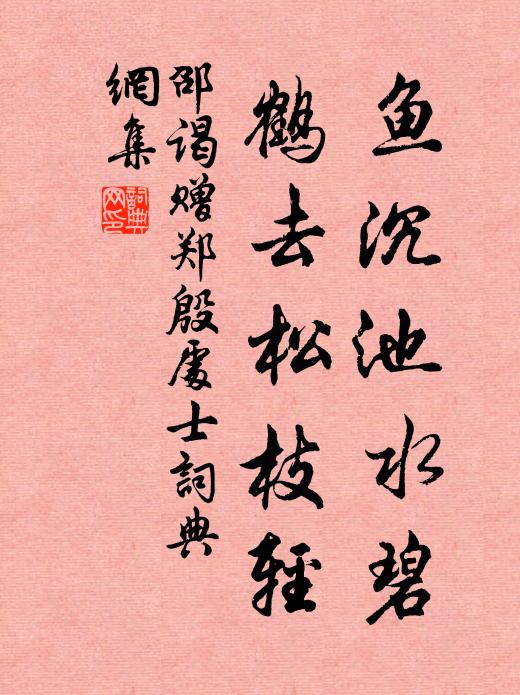 鱼沉池水碧
鹤去松枝輕
邵谒赠郑殷處士詞典
網集
詞典
网印